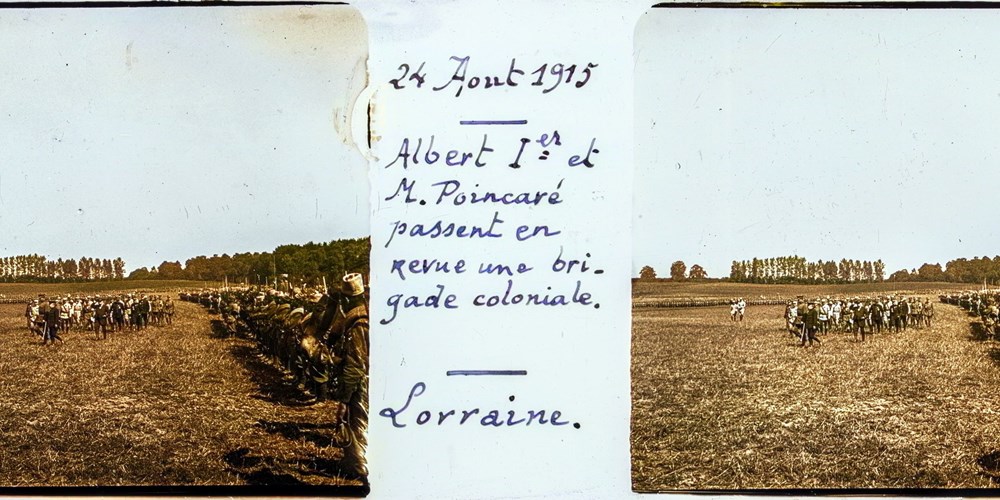 24 Aout 1915
Albert Ier et
M. Poincaré
passent en
revue une bri-
gade coloniale.
Lorraine.